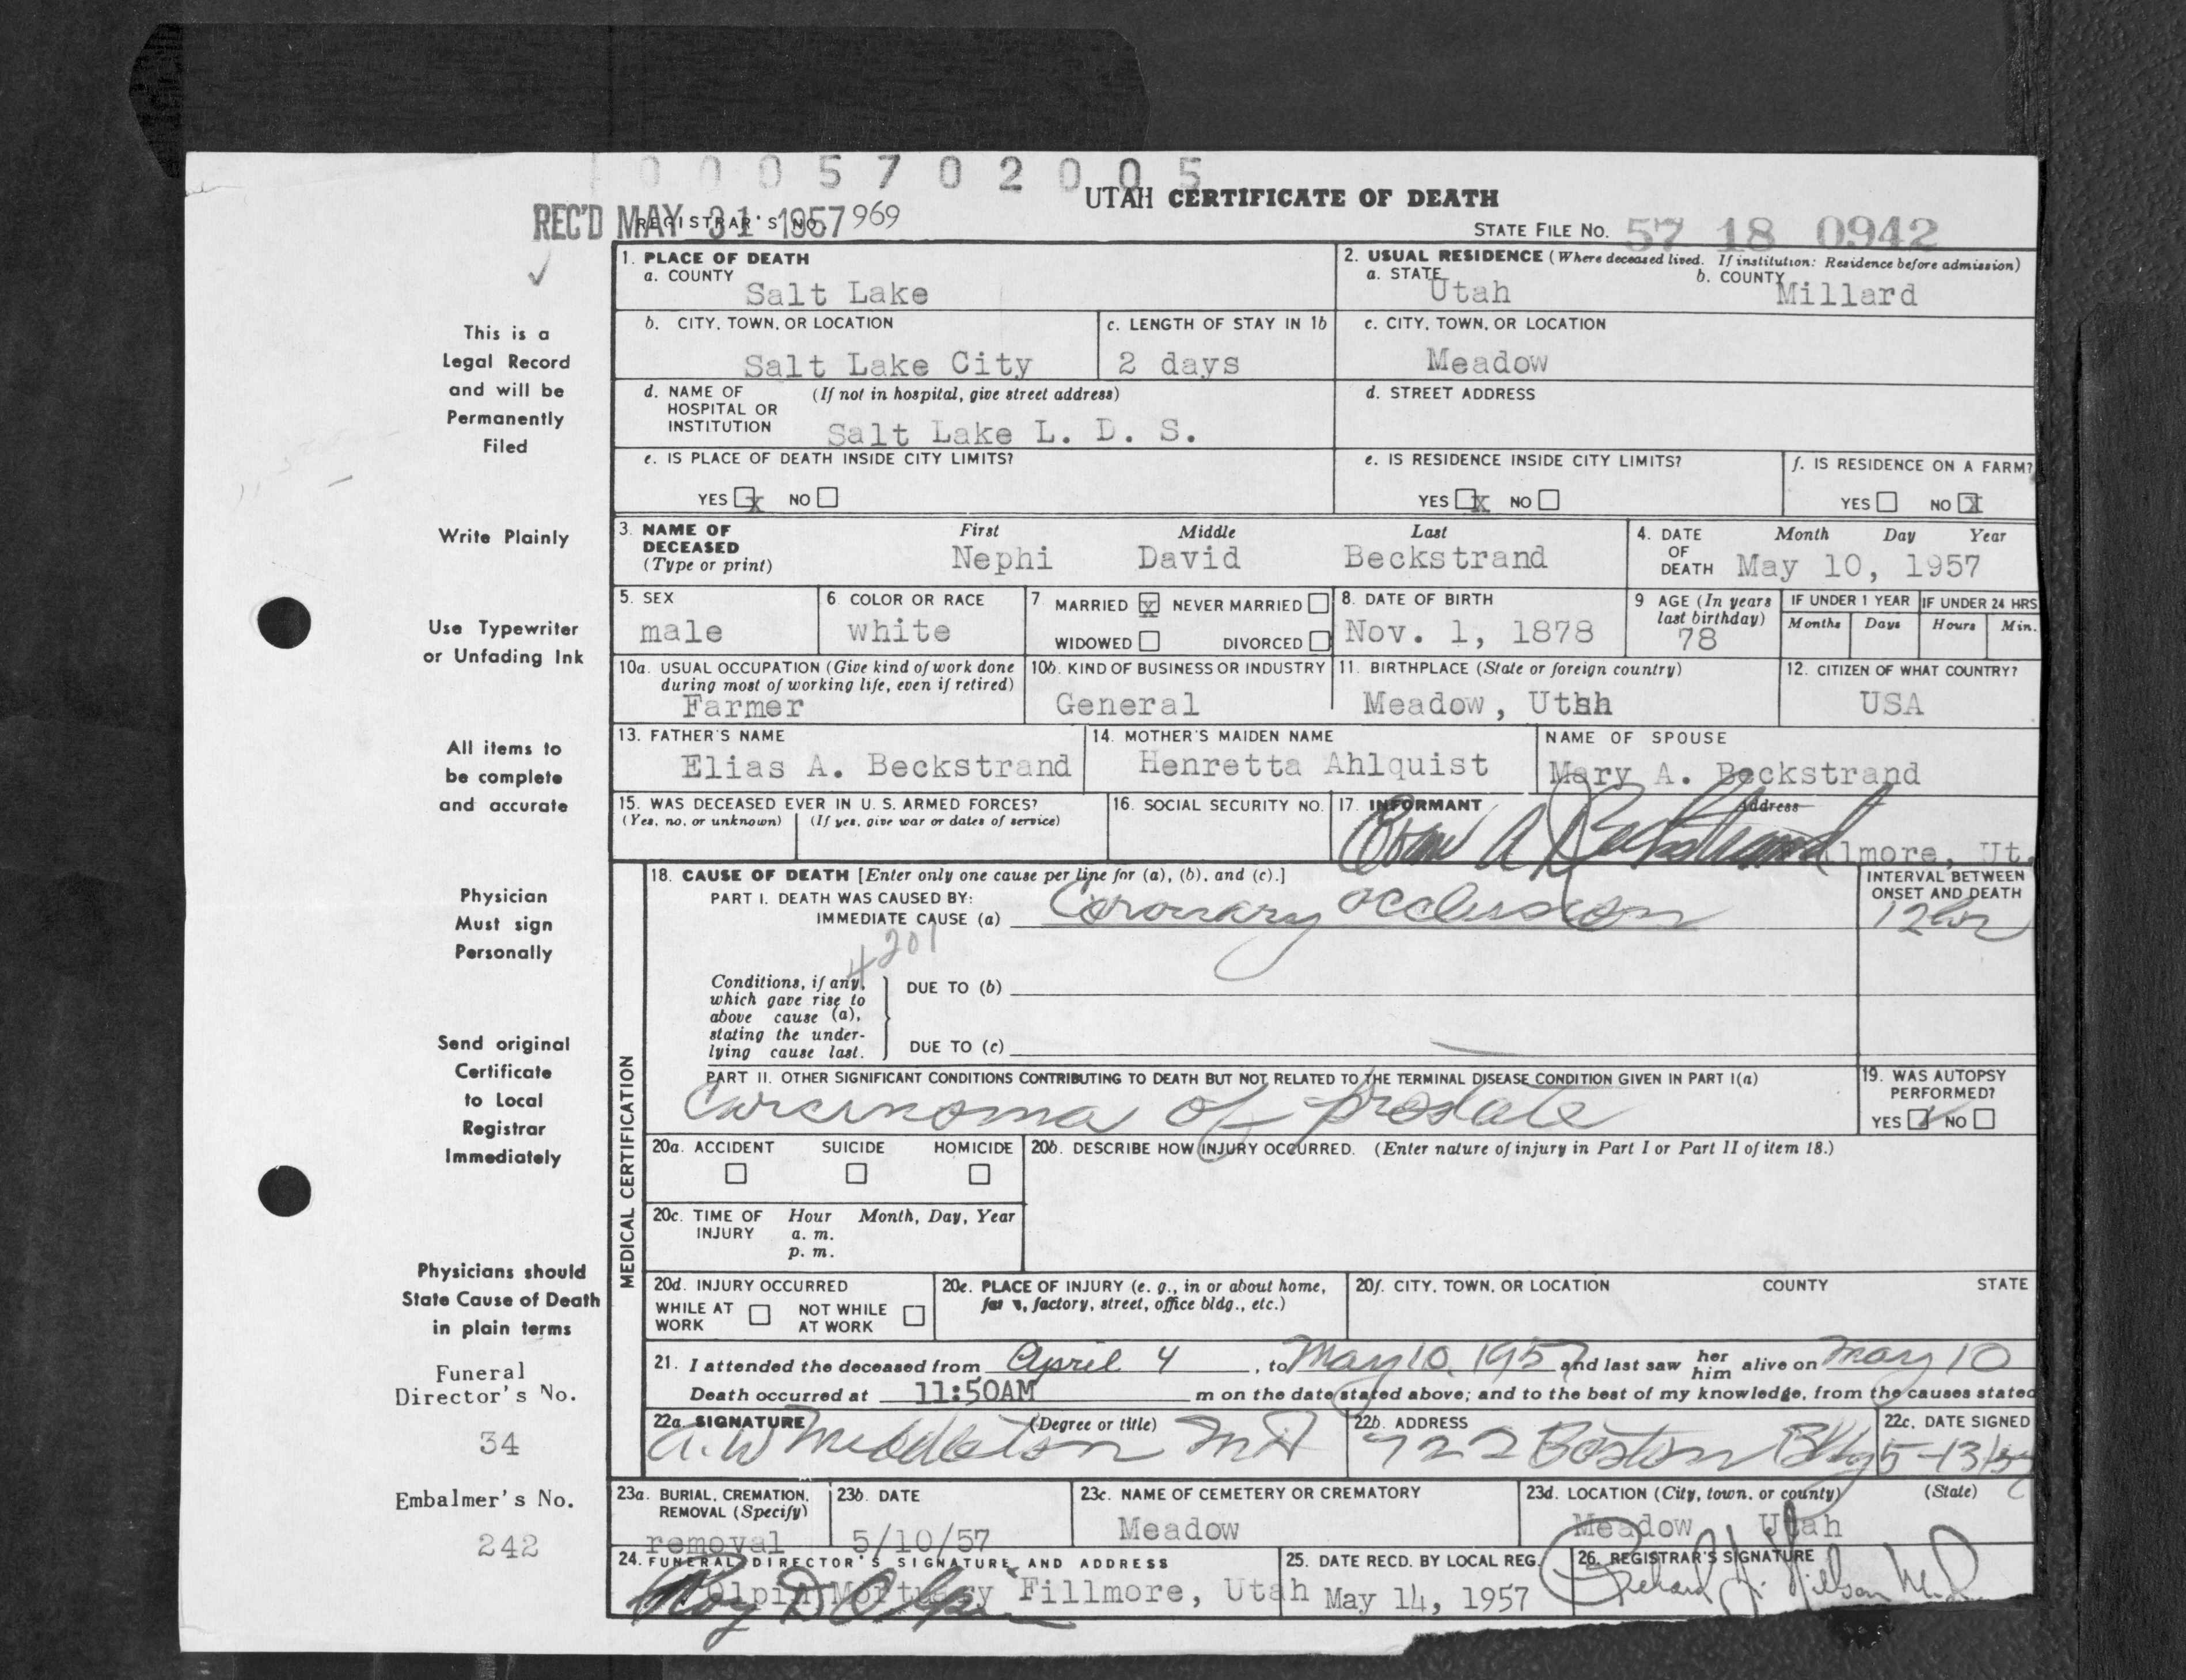 0 0 0 5 7 0 2 0 0 5
UTAH CERTIFICATE OF DEATH
REC'D MAY 31 1957
REGISTRAR'S NO. 969
STATE FILE NO. 57 18 0942
This is a
Legal Record
and will be
Permanently
Filed
Write Plainly
Use Typewriter
or Unfading Ink
All items to
be complete
and accurate
Physician
Must sign
Personally
Send original
Certificate
to Local
Registrar
Immediately
Physicians should
State Cause of Death
in plain terms
Funeral
Director's No.
34
Embalmer's No.
242
1. PLACE OF DEATH
a. COUNTY
Salt Lake
2. USUAL RESIDENCE (Where deceased lived. If institution: Residence before admission)
a. STATE Utah b. COUNTY Millard
b. CITY, TOWN, OR LOCATION
Salt Lake City
c. LENGTH OF STAY IN 1b
2 days
c. CITY, TOWN, OR LOCATION
Meadow
d. NAME OF (If not in hospital, give street address)
HOSPITAL OR
INSTITUTION Salt Lake L. D. S.
d. STREET ADDRESS
e. IS PLACE OF DEATH INSIDE CITY LIMITS?
YES X NO
e. IS RESIDENCE INSIDE CITY LIMITS?
YES X NO
f. IS RESIDENCE ON A FARM?
YES NO X
3. NAME OF DECEASED (Type or print)
First Middle Last
Nephi David Beckstrand
4. DATE OF DEATH
Month Day Year
May 10, 1957
5. SEX
male
6. COLOR OR RACE
white
7. MARRIED X NEVER MARRIED
WIDOWED DIVORCED
8. DATE OF BIRTH
Nov. 1, 1878
9 AGE (In years
last birthday)
78
IF UNDER 1 YEAR
Months Days
IF UNDER 24 HRS
Hours Min.
10a. USUAL OCCUPATION (Give kind of work done
during most of working life, even if retired)
Farmer
10b. KIND OF BUSINESS OR INDUSTRY
General
11. BIRTHPLACE (State or foreign country)
Meadow, Utah
12. CITIZEN OF WHAT COUNTRY?
USA
13. FATHER'S NAME
Elias A. Beckstrand
14. MOTHER'S MAIDEN NAME
Henretta Ahlquist
NAME OF SPOUSE
Mary A. Beckstrand
15. WAS DECEASED EVER IN U. S. ARMED FORCES?
(Yes, no, or unknown) (If yes, give war or dates of service)
16. SOCIAL SECURITY NO.
17. INFORMANT Address
A Beckstrand lmore, Ut.
MEDICAL CERTIFICATION
18. CAUSE OF DEATH [Enter only one cause per line for (a), (b), and (c).]
PART I. DEATH WAS CAUSED BY:
IMMEDIATE CAUSE (a) Coronary occlusion
INTERVAL BETWEEN
ONSET AND DEATH
12 hr
4201
Conditions, if any,
which gave rise to
above cause (a),
stating the under-
lying cause last.
DUE TO (b)
DUE TO (c)
PART II. OTHER SIGNIFICANT CONDITIONS CONTRIBUTING TO DEATH BUT NOT RELATED TO THE TERMINAL DISEASE CONDITION GIVEN IN PART I(a)
Carcinoma of prostate
19. WAS AUTOPSY
PERFORMED?
YES ✓ NO
20a. ACCIDENT SUICIDE HOMICIDE
20b. DESCRIBE HOW INJURY OCCURRED. (Enter nature of injury in Part I or Part II of item 18.)
20c. TIME OF INJURY
Hour Month, Day, Year
a. m.
p. m.
20d. INJURY OCCURRED
WHILE AT WORK NOT WHILE AT WORK
20e. PLACE OF INJURY (e. g., in or about home,
factory, street, office bldg., etc.)
20f. CITY, TOWN, OR LOCATION COUNTY STATE
21. I attended the deceased from April 4, to May 10, 1957 and last saw her him alive on May 10
Death occurred at 11:50AM m on the date stated above; and to the best of my knowledge, from the causes stated
22a. SIGNATURE (Degree or title)
A. W Middleton MD
22b. ADDRESS
722 Boston Bldg
22c. DATE SIGNED
5-13/57
23a. BURIAL, CREMATION,
REMOVAL (Specify)
removal
23b. DATE
5/10/57
23c. NAME OF CEMETERY OR CREMATORY
Meadow
23d. LOCATION (City, town, or county) (State)
Meadow Utah
24. FUNERAL DIRECTOR'S SIGNATURE AND ADDRESS
Olpin Mortuary Fillmore, Utah
Roy D Olpin
25. DATE RECD. BY LOCAL REG.
May 14, 1957
26. REGISTRAR'S SIGNATURE
Richard H. Nilson M.D.